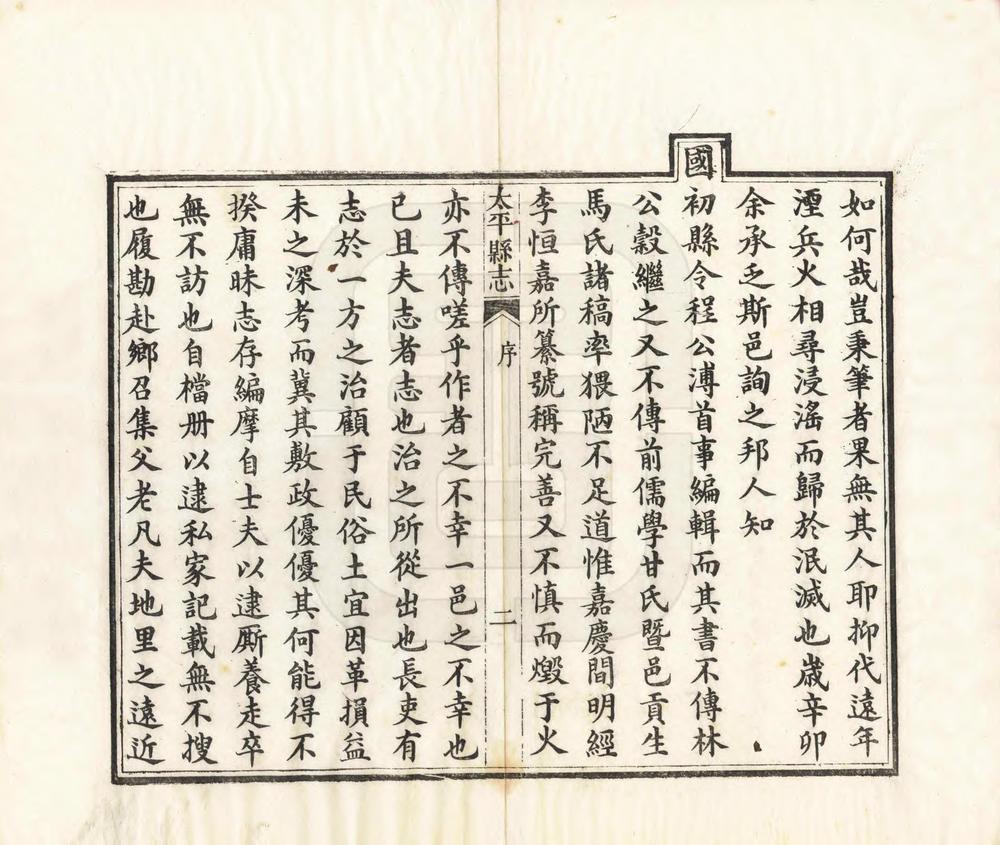 如何哉豈秉筆者果無其人耶抑代遠年
湮兵火相尋浸淫而歸於泯滅也歲辛卯
余承乏斯邑詢之邦人知
國初縣令程公溥首事編輯而其書不傳林
公穀繼之又不傳前儒學甘氏暨邑貢生
馬氏諸稿率猥陋不足道惟嘉慶間明經
李恒嘉所纂號稱完善又不慎而燬于火
太平縣志 序 二
亦不傳嗟乎作者之不幸一邑之不幸也
已且夫志者志也治之所從出也長吏有
志於一方之治顧于民俗土宜因革損益
未之深考而冀其敷政優優其何能得不
揆庸昧志存編摩自士夫以逮厮養走卒
無不訪也自檔册以逮私家記載無不搜
也履勘赴鄉召集父老凡夫地里之遠近